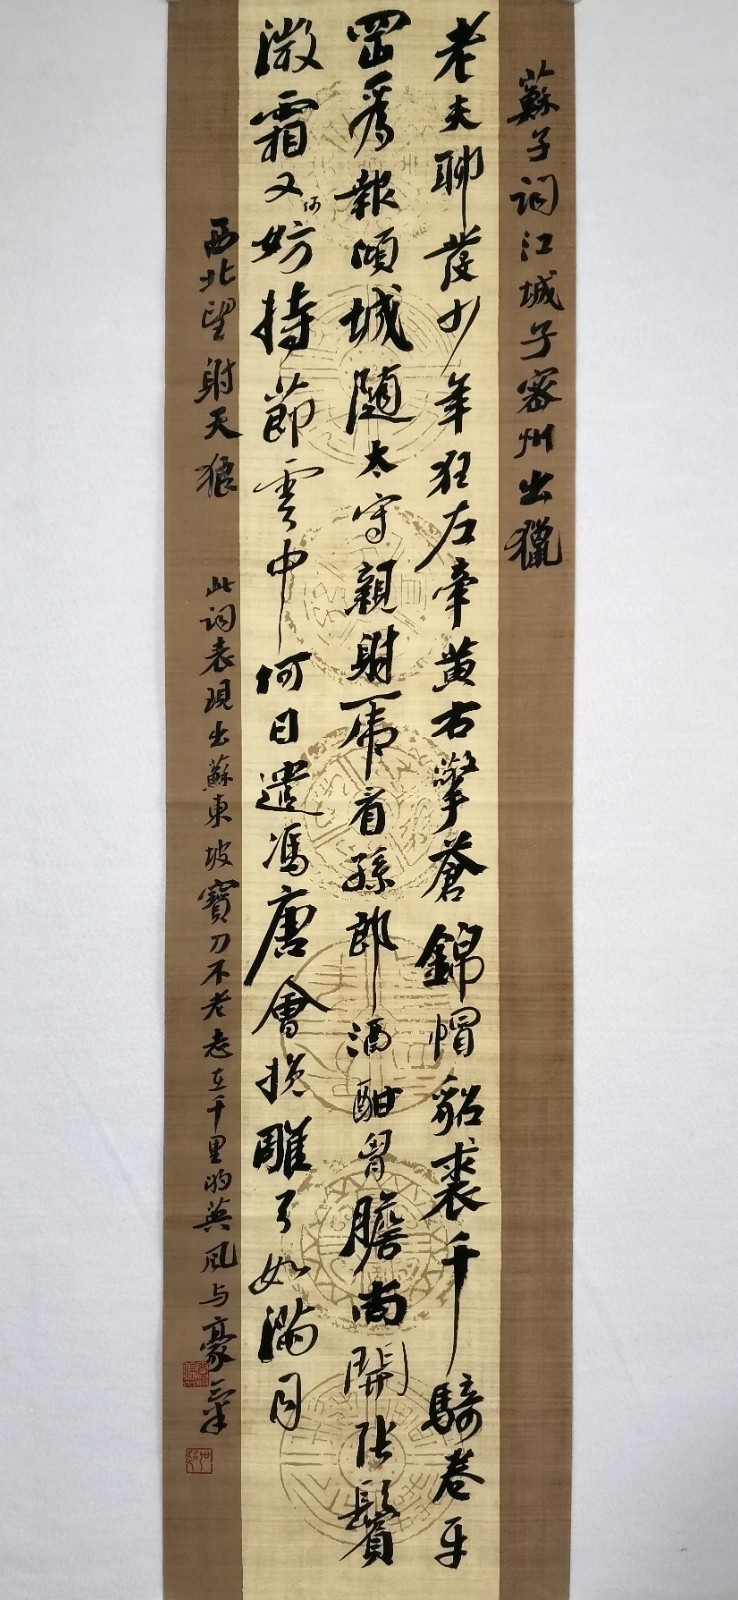 蘇子词江城子密州出獵
老夫聊發少年狂左牽黄右擎蒼錦帽貂裘千騎卷平
岡為報傾城随太守親射虎看孫郎酒酣胷膽尚開张鬢
微霜又何妨持節雲中何日遣馮唐會挽雕弓如满月
西北望射天狼
此词表現出蘇東坡寶刀不老志在千里的英风与豪氣